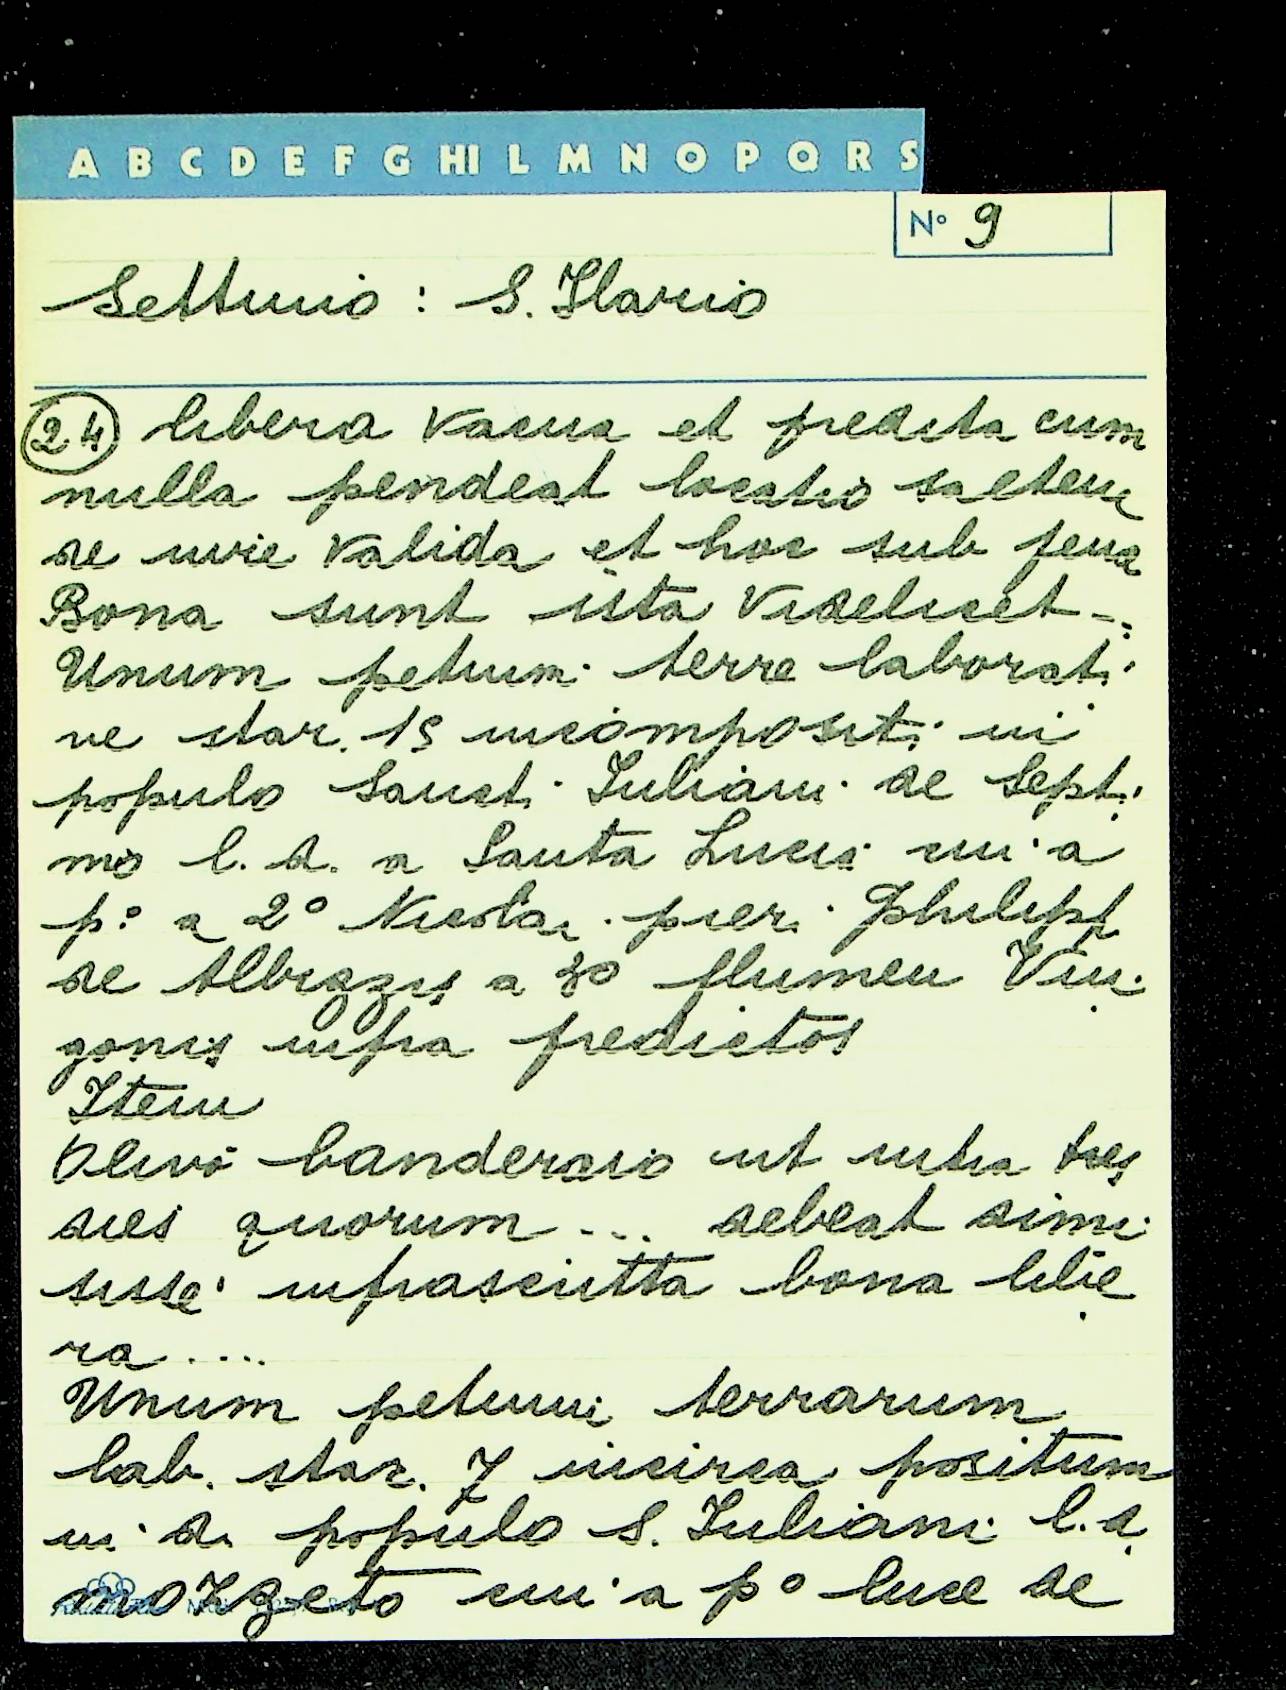 A B C D E F G HI L M N O P Q R S
N° 9
Settimo : S. Ilario
24 libera vacua et predita cum
nulla pendeat locatio saltem
de iure valida et hoc sub pena
Bona sunt ista videlicet -.
Unum petium terre laborati
ve star. 15 incompositi in
populo Sancti Iuliani de Septi
mo l. d. a Santa Lucia cui a
p.° a 2° Nicolai pier. Philippi
de Albizzis a 3o flumen Vin
gonis infra predictos
Item
banderaio ut intra tres
dies quorum ... debeat dimi
sisse infrascritta bona libe
ra ....
Unum petium terrarum
lab. star. 7 incirca positum
in d. populo S. Iuliani l. d.
cui a p° luce de